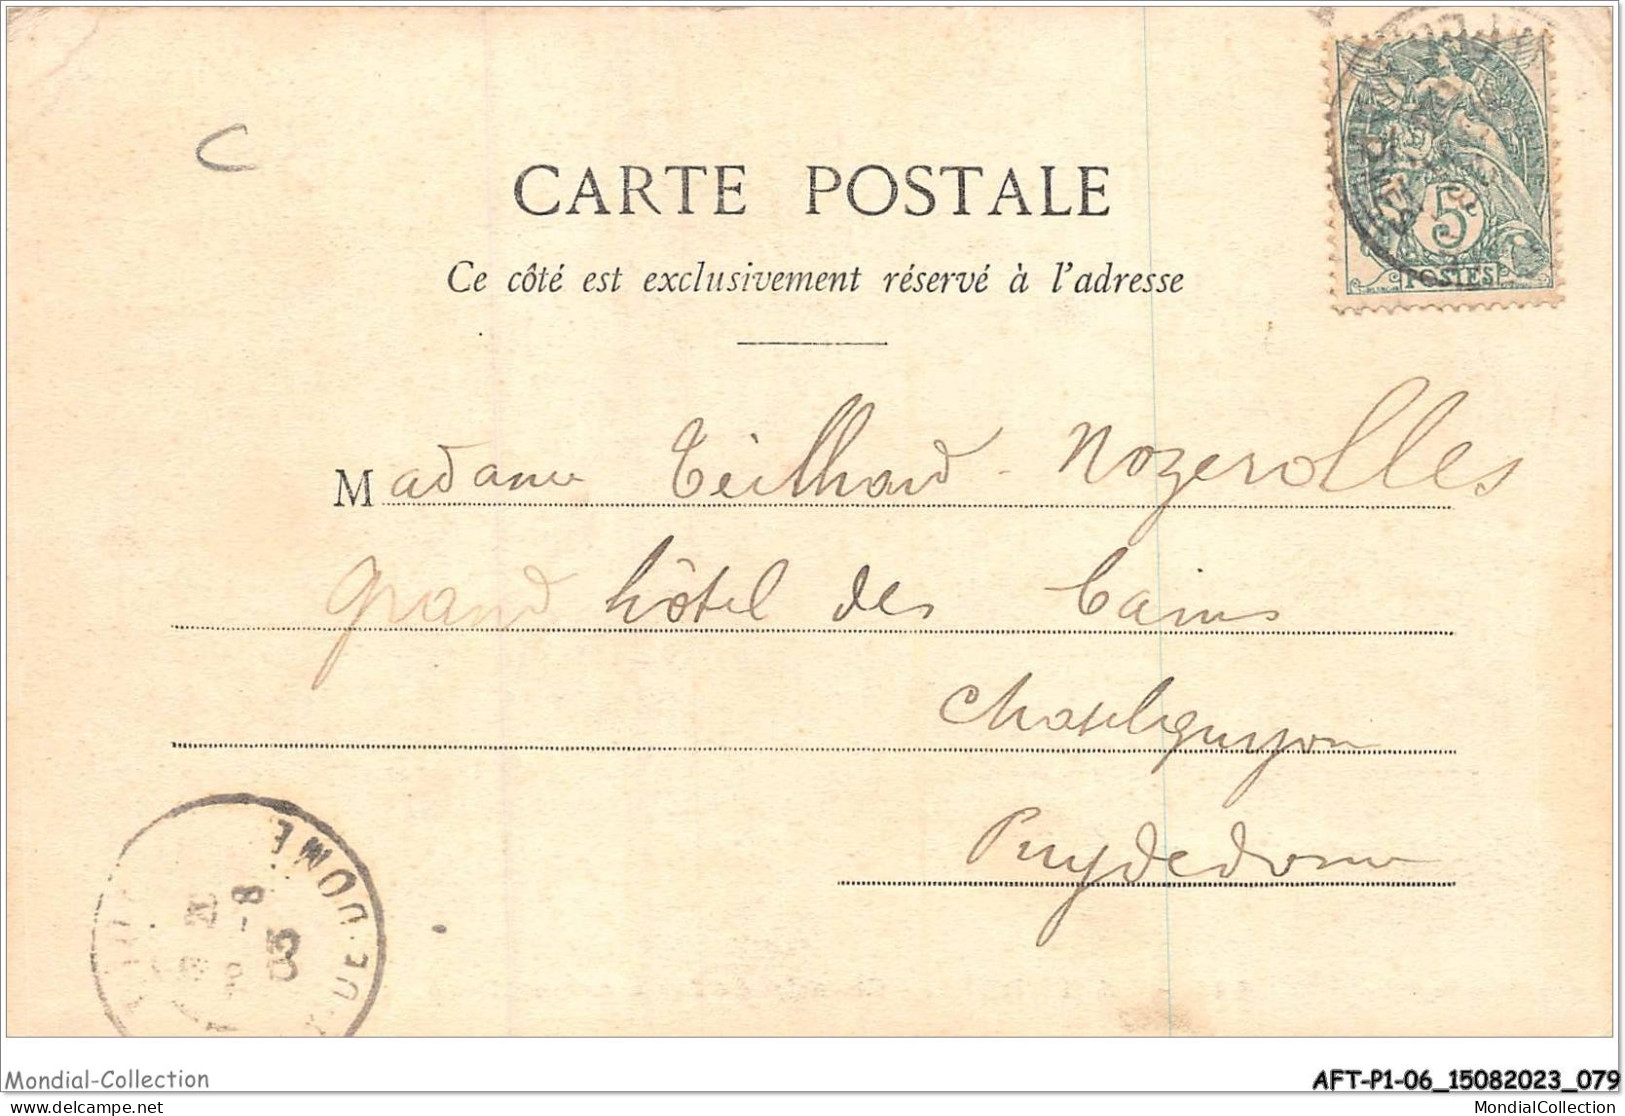 C
CARTE POSTALE
Ce côté est exclusivement réservé à l'adresse
5
POSTES
Madame Teilhard-Nozerolles
grand hôtel des bains
Chatelguyon
Puydedome
DOME
8-
05
Mondial-Collection
AFT-P1-06_15082023_079
delcampe.net
MondialCollection